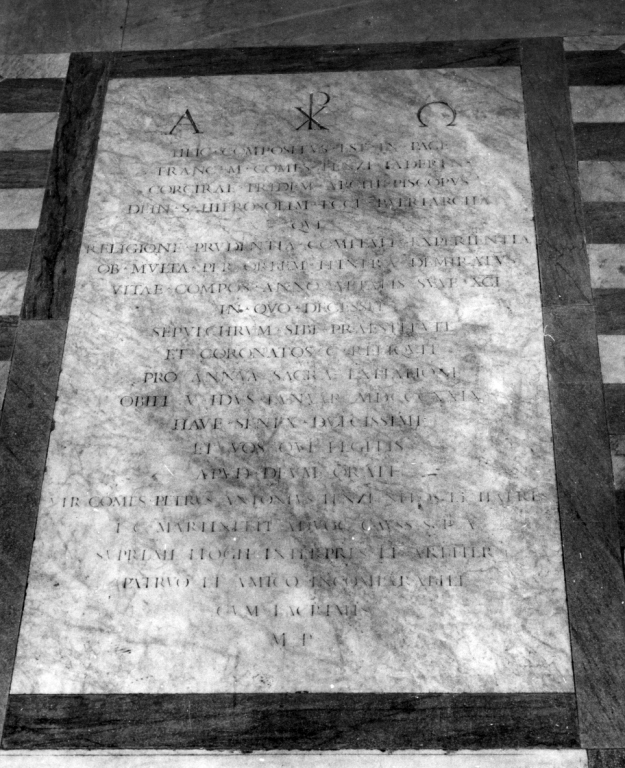 Α ☧ Ω
HIC · COMPOSITVS · EST · IN · PACE
FRANC · M · COMES · FENZI · IADERTIN
CORCIRAE · PRIDEM · ARCHIEPISCOPVS
DEIN · S · HIEROSOLIM · ECCL · PATRIARCHA
QVI
RELIGIONE · PRVDENTIA · COMITATE · EXPERIENTIA
OB · MVLTA · PER · ORBEM · ITINERA · DEMIRATVS
VITAE · COMPOS · ANNO · AETATIS · SVAE · XCI
IN · QVO · DECESSIT
SEPVLCHRVM · SIBI · PRAESTITVIT
ET · CORONATOS · C · RELIQVIT
PRO · ANNVA · SACRI · LITATIONE
OBIIT · V · IDVS · IANVAR · MDCCCXXIX
HAVE · SENEX · DVLCISSIME
ET · VOS · QVI · LEGITIS
APVD · DEVM · ORATE
VIR · COMES · PETRVS · ANTONIVS · FENZI · NEPOS · ET · HAERES
ADVOC · CAVSS
SVPREMI · INTERPRES · ET
PATRVO · ET · AMICO · INCOMPARABILI
CVM · LACRIMIS
M · P